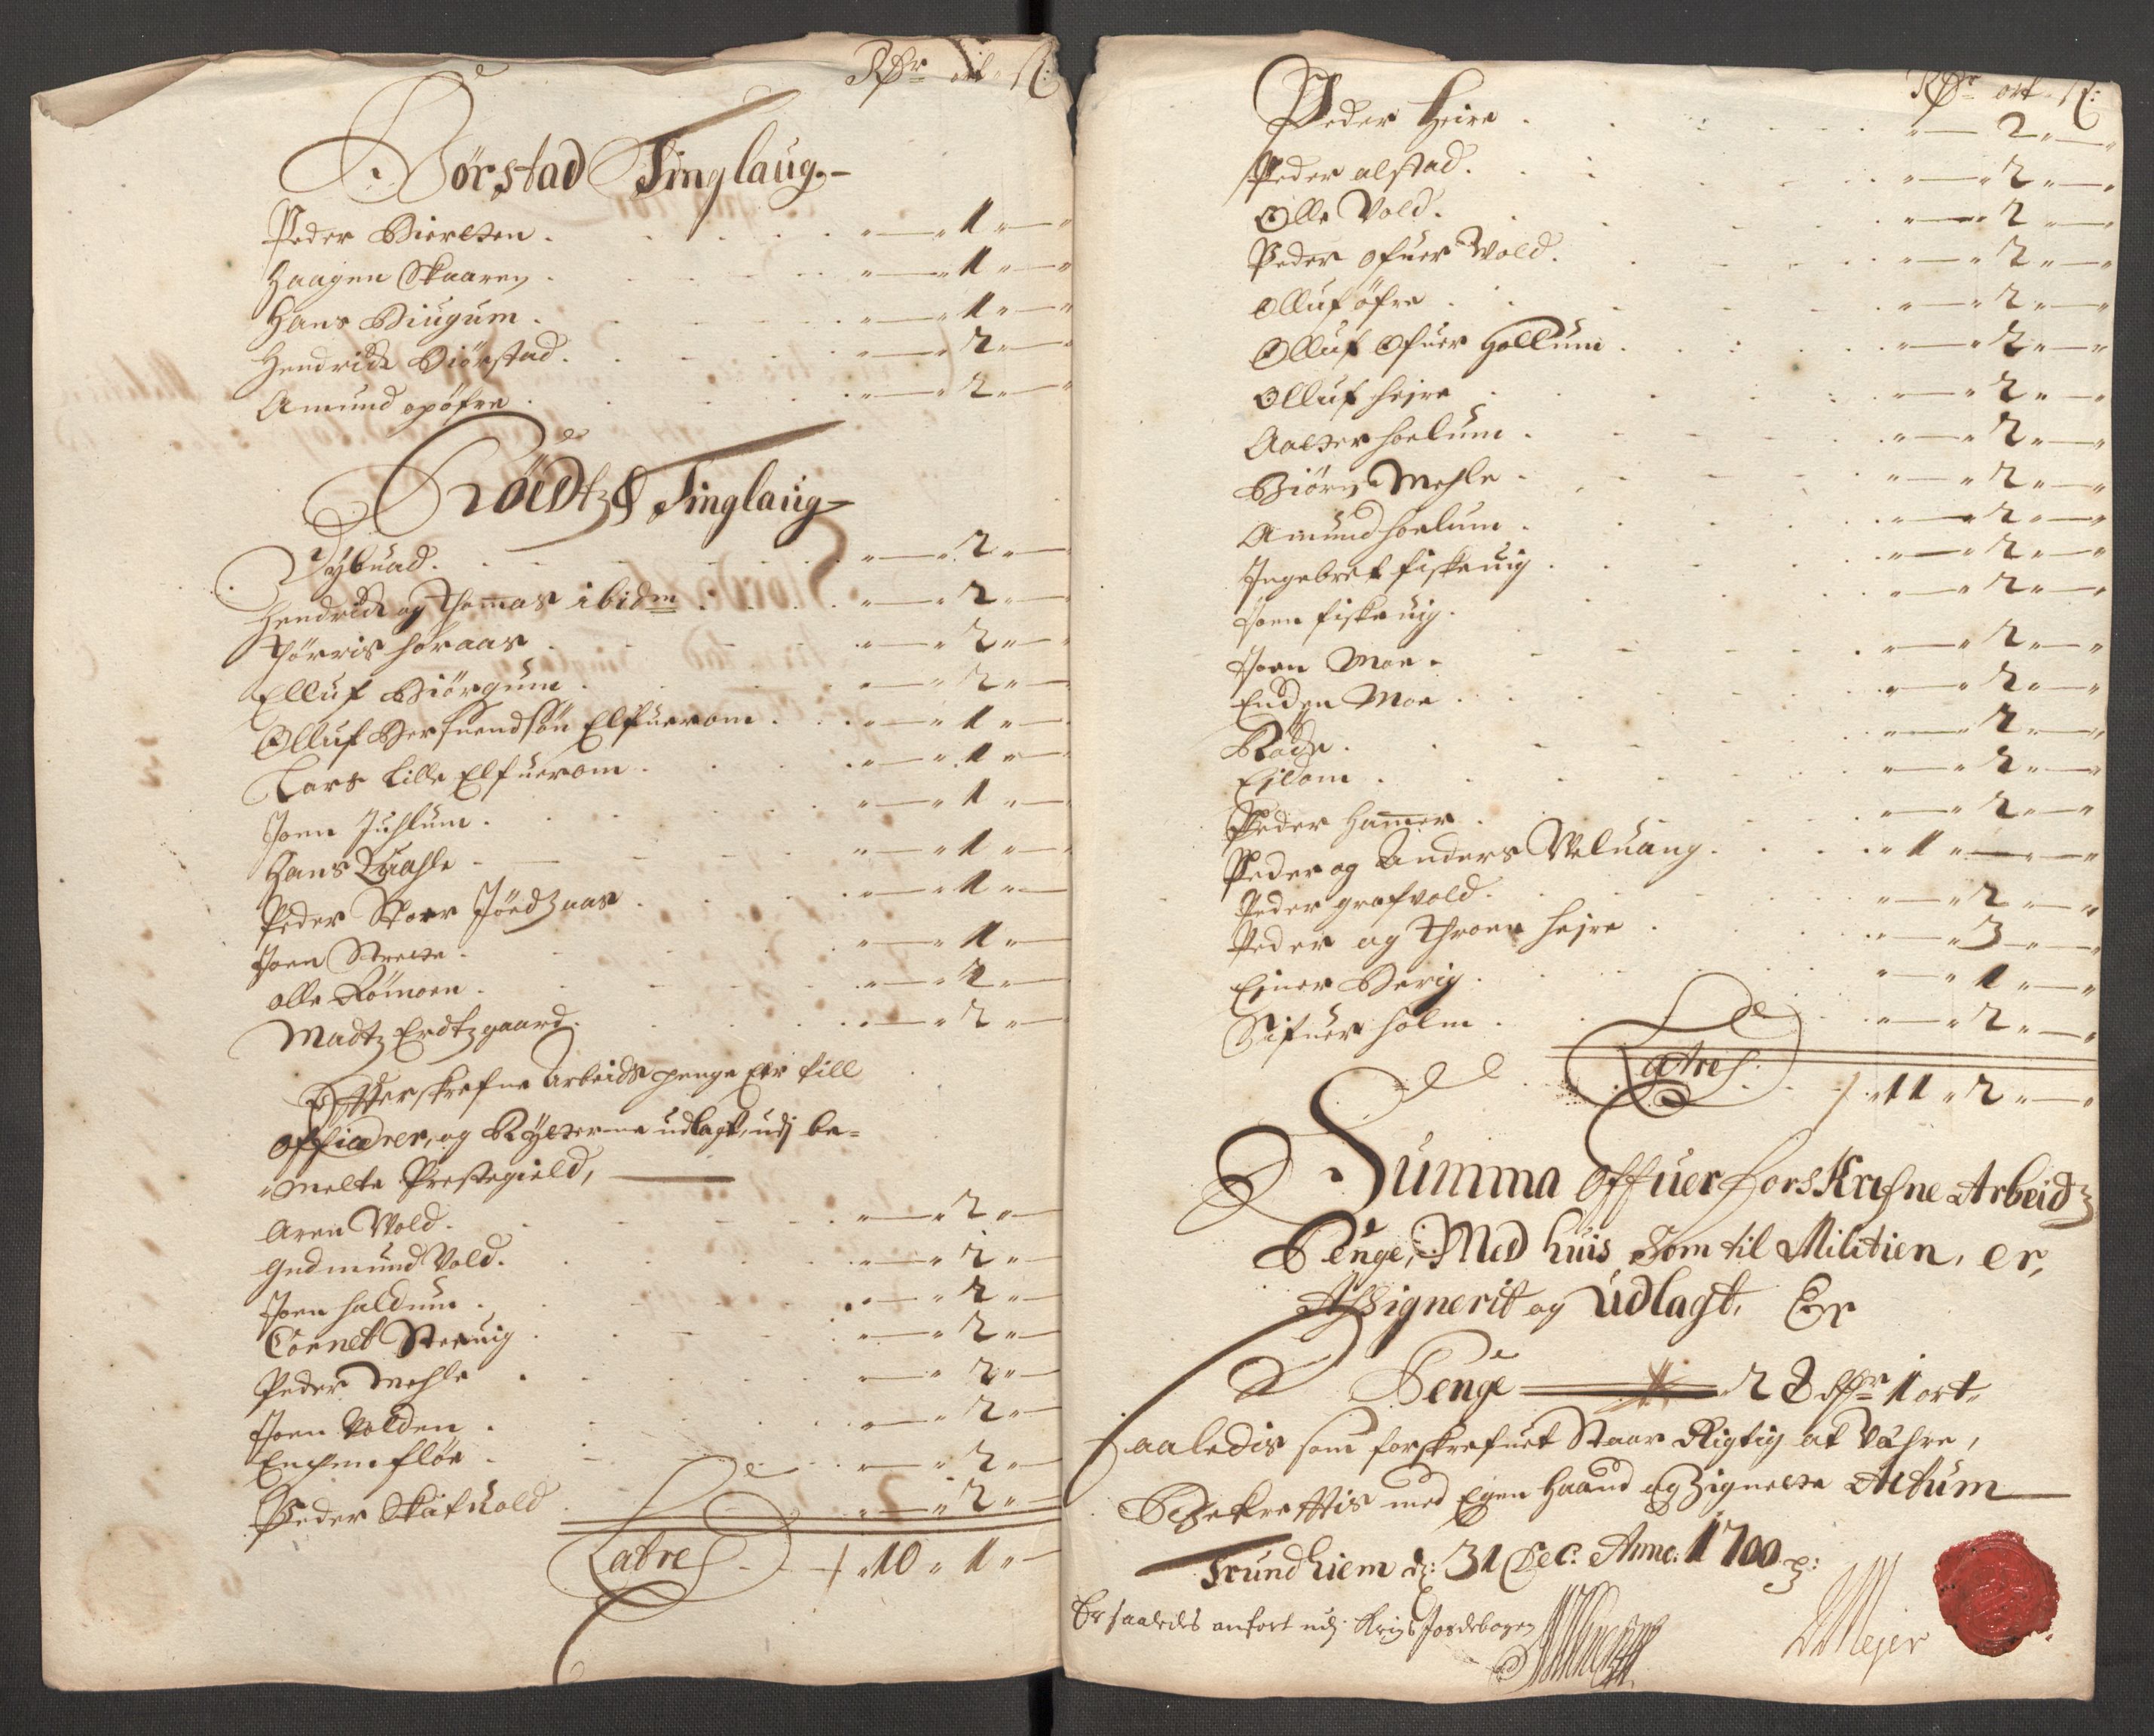 Rdr ort ß:
Börstad Tinglaug.
Peder Biertzen . " — " 1 " — "
Haagen Skaaren . " — " 1 " — "
Hans Biugum . " — " 1 " — "
Hendrich Biörstad . " — " 2 " — "
Amund opöfre . " — " 2 " — "
Tinglaug
Dybuad . " — " 2 " —
Hendrich og Thommas ibidm . " — " 2 " —
Thörris horaas . " — " 2 " —
Elluf Biörgum . " — " 2 " —
Olluf Bersuendsön Elfuerom . " — " 1 " —
Lars Lille Elfuerom . " — " 1 " —
Joen Juhlum . " — " 1 " —
Hans Quahle . " — " 1 " —
Peder Stoer . " — " 1 " —
Joen . " — " 1 " —
Olle Römoen . " — " 2 " —
Madtz Erdtzgaard . " — " 2 " —
Efterskrefne Arbeids penge Er till
Officerer, og Rytterne udlagt, udj be-
melte Prestegield,
Aren Wold . " — " 2 " —
Gudmund Vold . " — " 2 " —
Joen haldum . " — " 2 " —
Cornet . " — " 2 " —
Peder Mehle . " — " 2 " —
Joen Volden . " — " 2 " —
flöe . " — " 2 " —
Peder . " — " 2 " —
Latres . 10 " 1 " —
Rdr ort ß:
Peder Heire . " — 2 " — "
Peder alstad . " — " 2 " — "
Olle Vold . " — " 2 " — "
Peder ofuer Wold . " — " 2 " — "
Olluf öfre . " — " 2 " — "
Olluf Ofuer Hollum . " — " 2 " — "
Olluf heire . " — " 2 " — "
hoelum . " — " 2 " — "
Biörn Mehle . " — " 2 " — "
Amund hoelum . " — " 2 " — "
Ingebret fiskeuig . " — " 2 " — "
Joen fiskeuig . " — " 2 " — "
Joen Moe . " — " 2 " — "
Moe . " — " 2 " — "
Röde . " — " 2 " — "
Eidom . " — " 2 " — "
Peder Hammer . " — " 2 " — "
Peder og Anders Veluang . " 1 " — " — "
Peder grafvold . " — " 2 " — "
Peder og Throen heire . " — " 3 " — "
Einer Berig . " — " 1 " — "
Sifuer holm . " — " 2 " — "
Latres . 11 " 2 " — "
Summa Offuer forskrefne Arbeidz
Penge, Med huis som til Militien, er,
Assignerit og Udlagt, Er
Penge — 28 Rdr 1 ort
Saaledis som forskrefuet Staar Rigtig at Vähre,
Bekreftis med Egen Haand og Zignette Actum
Trundhiem d: 31 Dec: Anno 1700
Er saaledes anført udj Krigs Jordebogen
Meyer